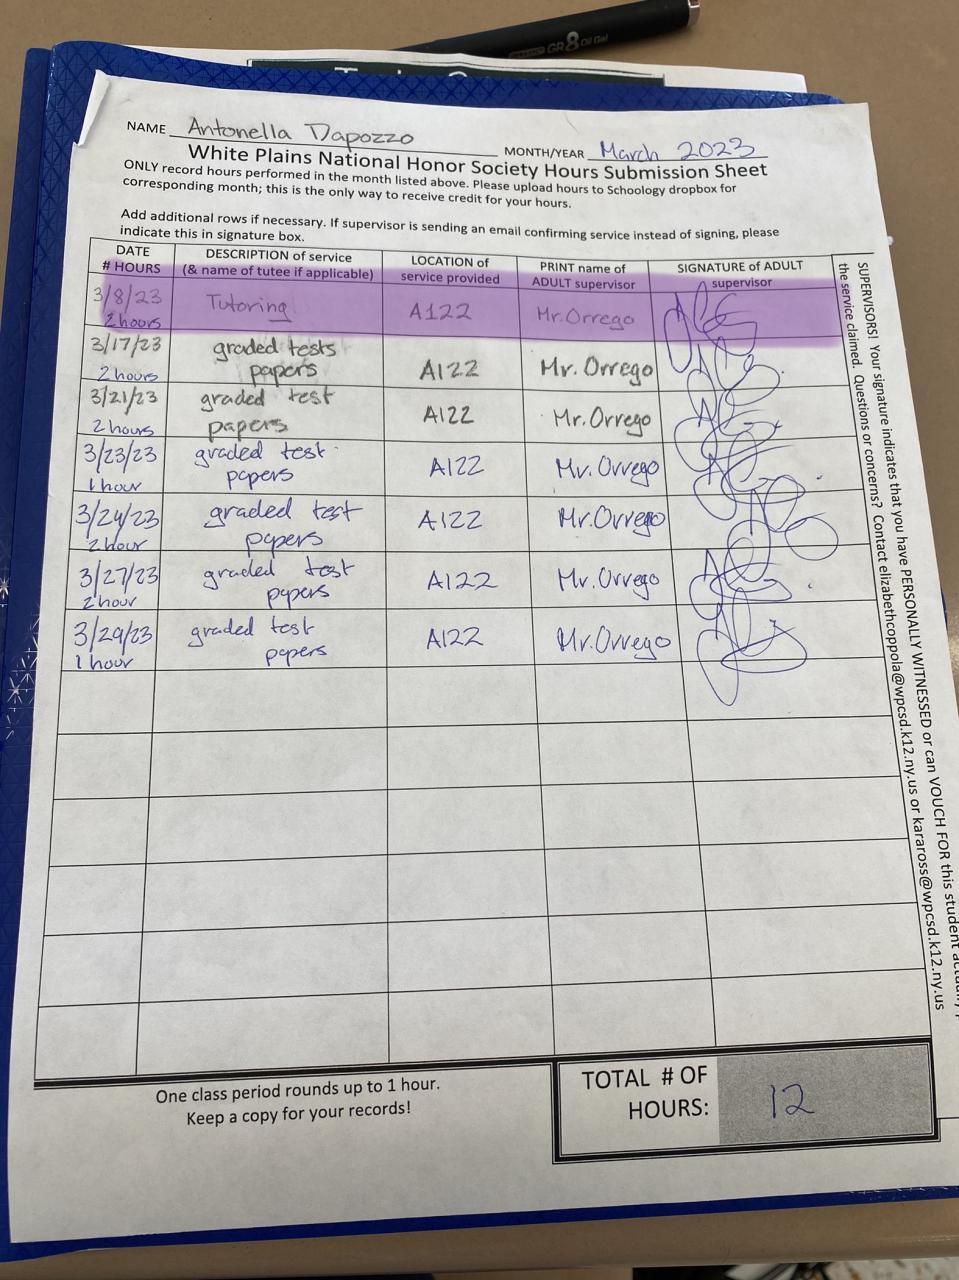 GR8 Oil Gel
NAME Antonella Dapozzo
MONTH/YEAR March 2023
White Plains National Honor Society Hours Submission Sheet
ONLY record hours performed in the month listed above. Please upload hours to Schoology dropbox for
corresponding month; this is the only way to receive credit for your hours.
Add additional rows if necessary. If supervisor is sending an email confirming service instead of signing, please
indicate this in signature box.
DATE
# HOURS
DESCRIPTION of service
(& name of tutee if applicable)
LOCATION of
service provided
PRINT name of
ADULT supervisor
SIGNATURE of ADULT
supervisor
3/8/23
2 hours
Tutoring
A122
Mr. Orrego
3/17/23
2 hours
graded tests
papers
A122
Mr. Orrego
3/21/23
2 hours
graded test
papers
A122
Mr. Orrego
3/23/23
1 hour
graded test
papers
A122
Mr. Orrego
3/24/23
2 hour
graded test
papers
A122
Mr. Orrego
3/27/23
2 hour
graded test
papers
A122
Mr. Orrego
3/29/23
1 hour
graded test
papers
A122
Mr. Orrego
SUPERVISORS! Your signature indicates that you have PERSONALLY WITNESSED or can VOUCH FOR this student
the service claimed. Questions or concerns? Contact elizabethcoppola@wpcsd.k12.ny.us or karaross@wpcsd.k12.ny.us
One class period rounds up to 1 hour.
Keep a copy for your records!
TOTAL # OF
HOURS:
12